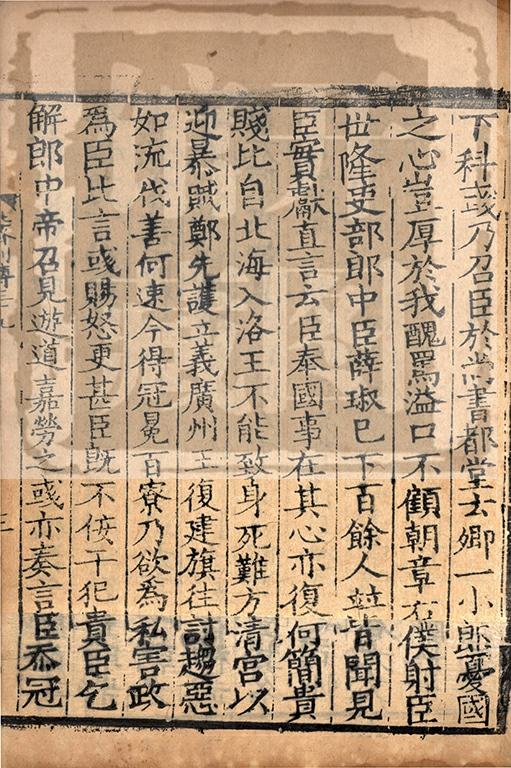 下科彧乃召臣於尚書都堂云卿一小郎憂國
之心豈厚於我醜罵溢口不顧朝章右僕射臣
世隆吏部郎中臣薛琡已下百餘人並皆聞見
臣實獻直言云臣奉國事在其心亦復何簡貴
賤比自北海入洛王不能致身死難方清宮以
迎暴賊鄭先護立義廣州王復建旗往討趨惡
如流伐善何速今得冠冕百寮乃欲爲私害政
爲臣此言彧賜怒更甚臣旣不佞干犯貴臣乞
解郎中帝召見遊道嘉勞之彧亦奏言臣忝冠